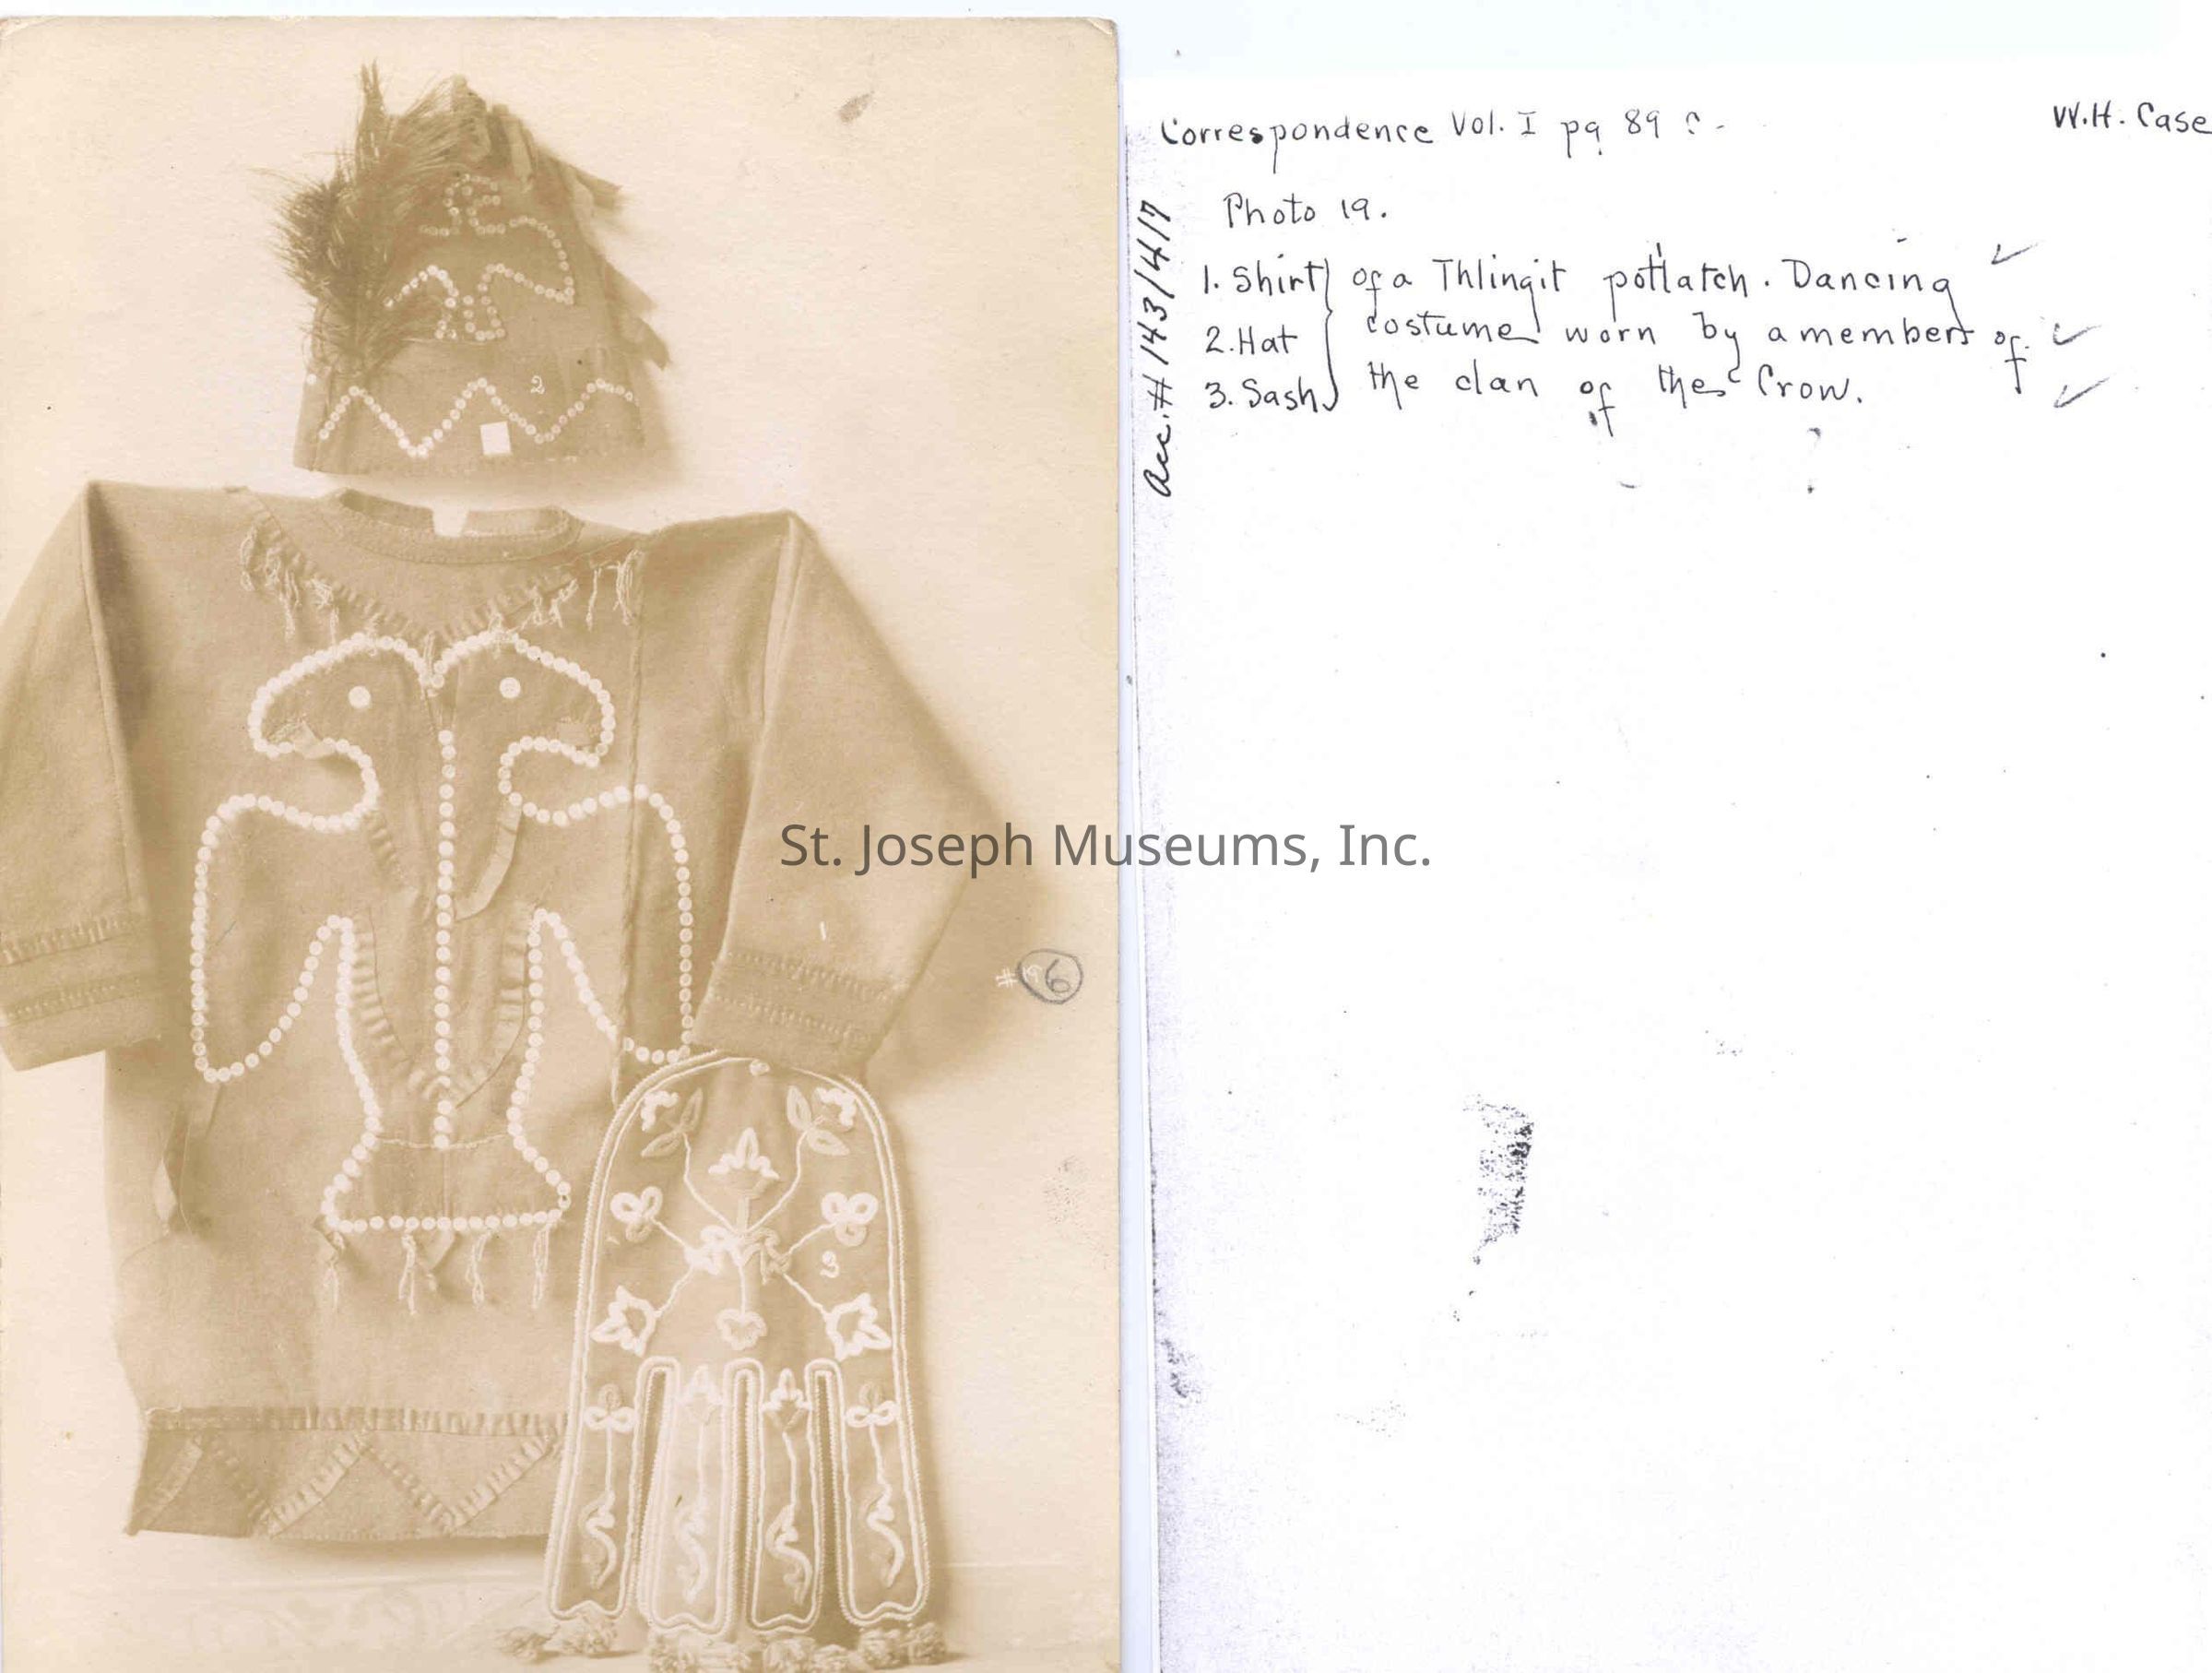 Correspondence Vol. I pg 89
W.H. Case
Photo 19.
1. Shirt } of a Thlingit potlatch. Dancing
2. Hat } costume worn by a member of
3. Sash } the clan of the Crow.
Acc.# 143/417
2
1
# 19 6
3
St. Joseph Museums, Inc.